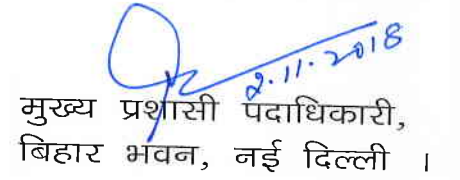 2.11.2018
मुख्य प्रशासी पदाधिकारी,
बिहार भवन, नई दिल्ली ।